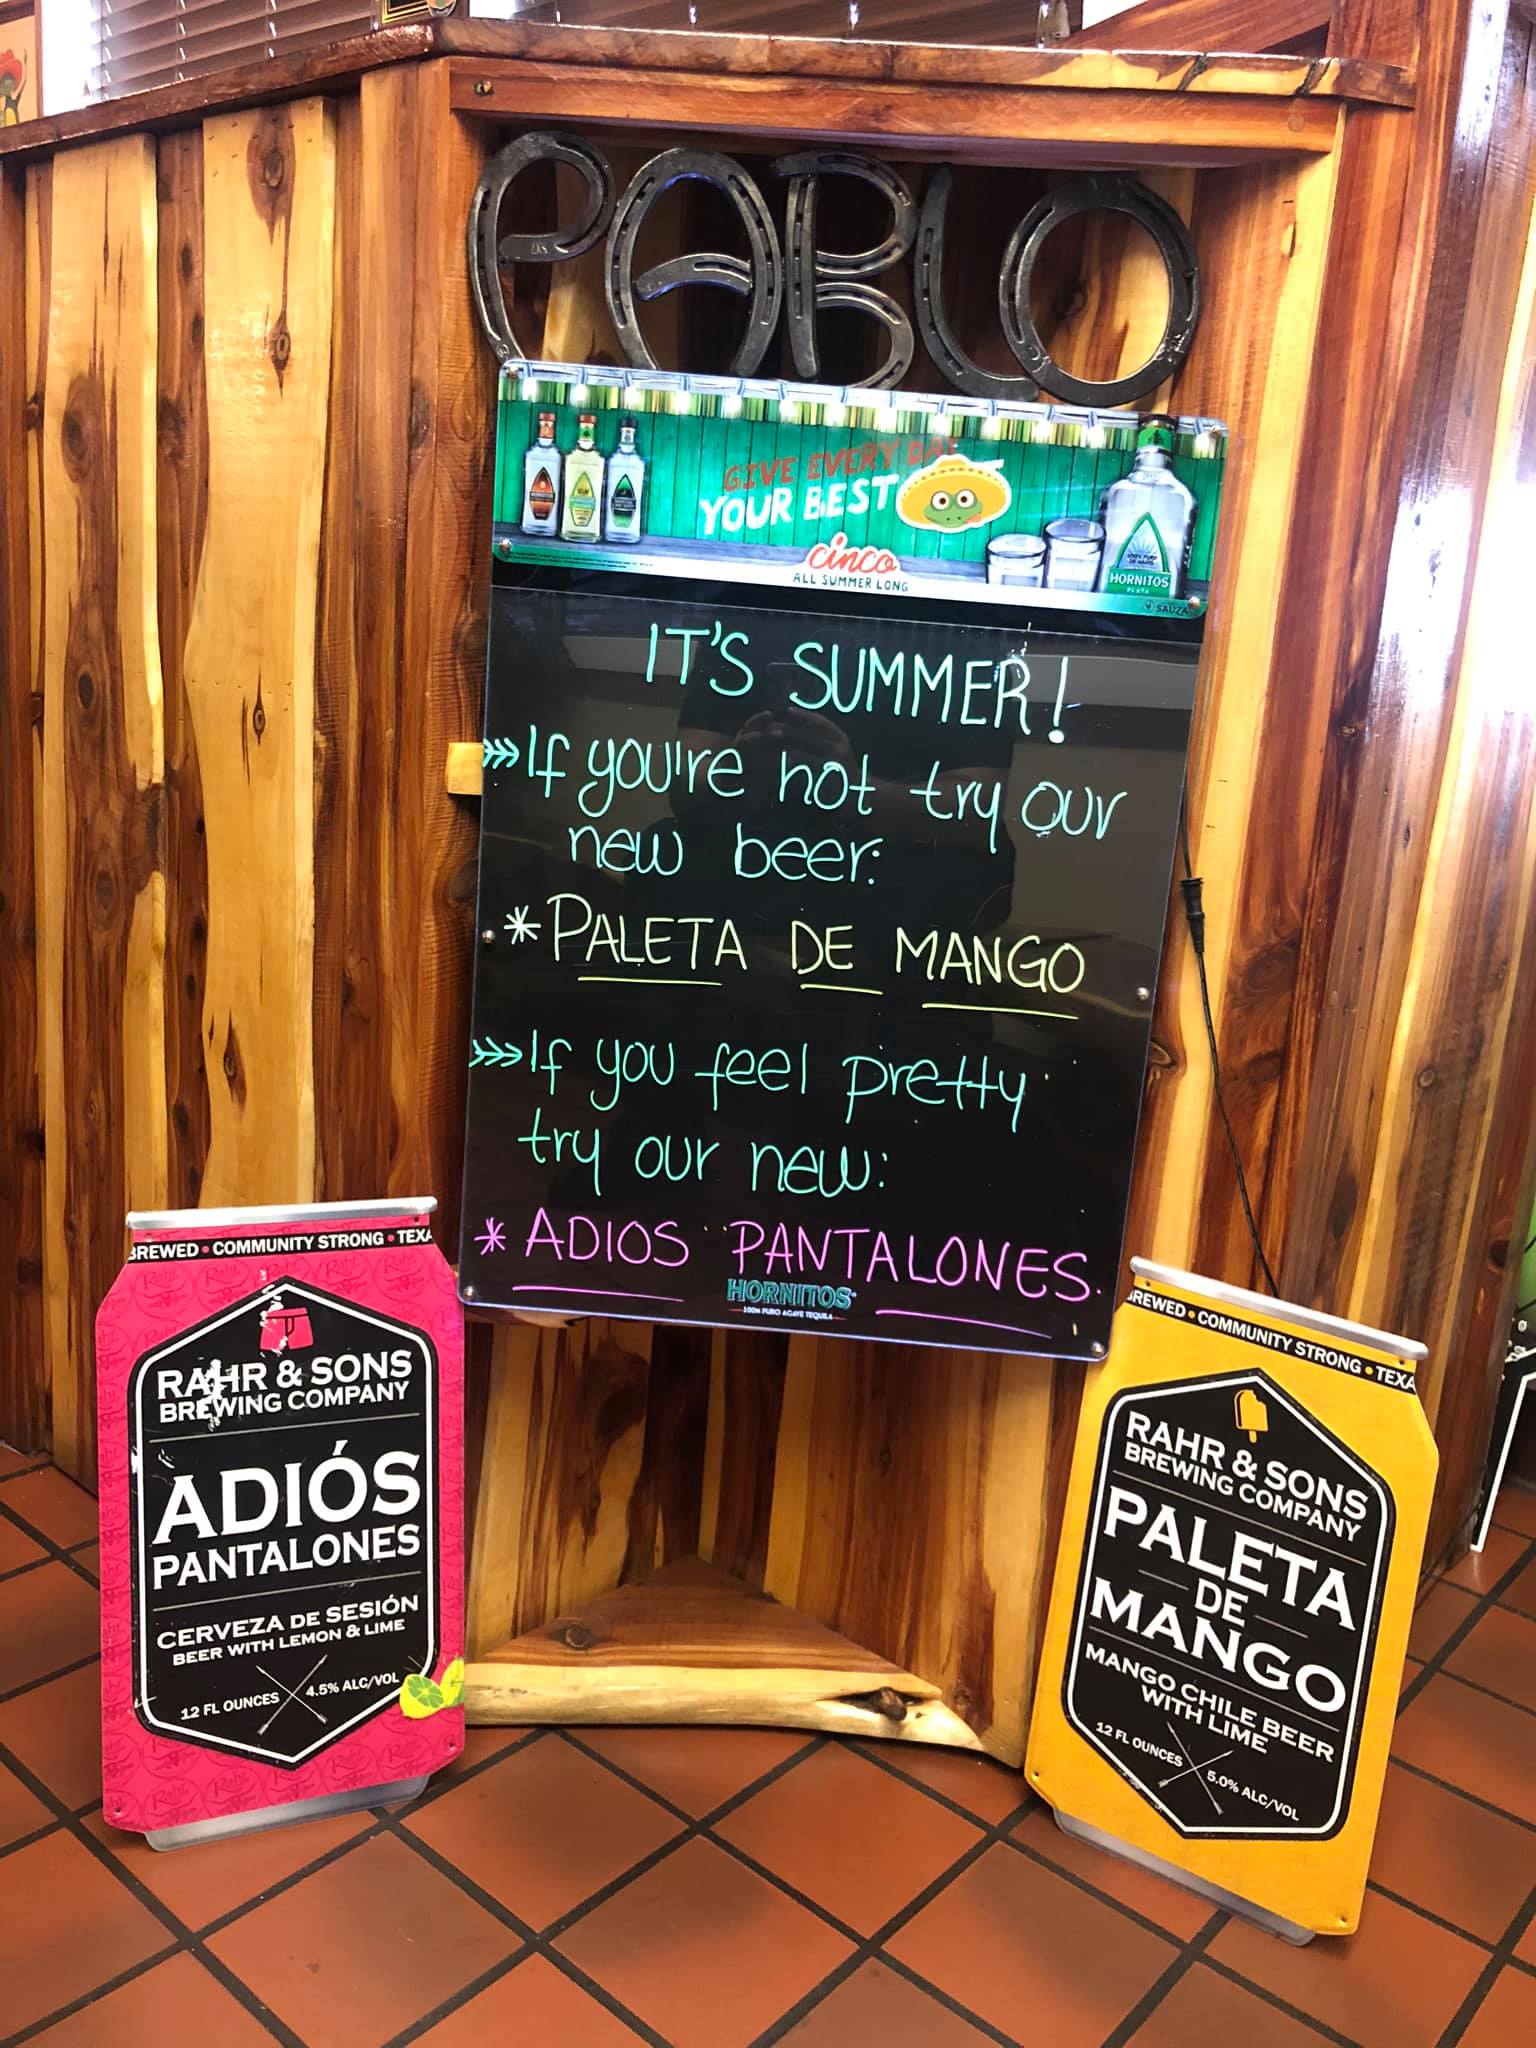 PABLO
GIVE EVERY DAY
YOUR BEST
cinco
ALL SUMMER LONG
HORNITOS
PLATA
SAUZA
IT'S SUMMER!
»»If you're hot try our
new beer:
* PALETA DE MANGO
»»If you feel pretty
try our new:
* ADIOS PANTALONES.
HORNITOS
100% PURO AGAVE TEQUILA
BREWED • COMMUNITY STRONG • TEXA
RAHR & SONS
BREWING COMPANY
ADIÓS
PANTALONES
CERVEZA DE SESIÓN
BEER WITH LEMON & LIME
12 FL OUNCES 4.5% ALC/VOL
BREWED • COMMUNITY STRONG • TEXA
RAHR & SONS
BREWING COMPANY
PALETA
DE
MANGO
MANGO CHILE BEER
WITH LIME
12 FL OUNCES 5.0% ALC/VOL